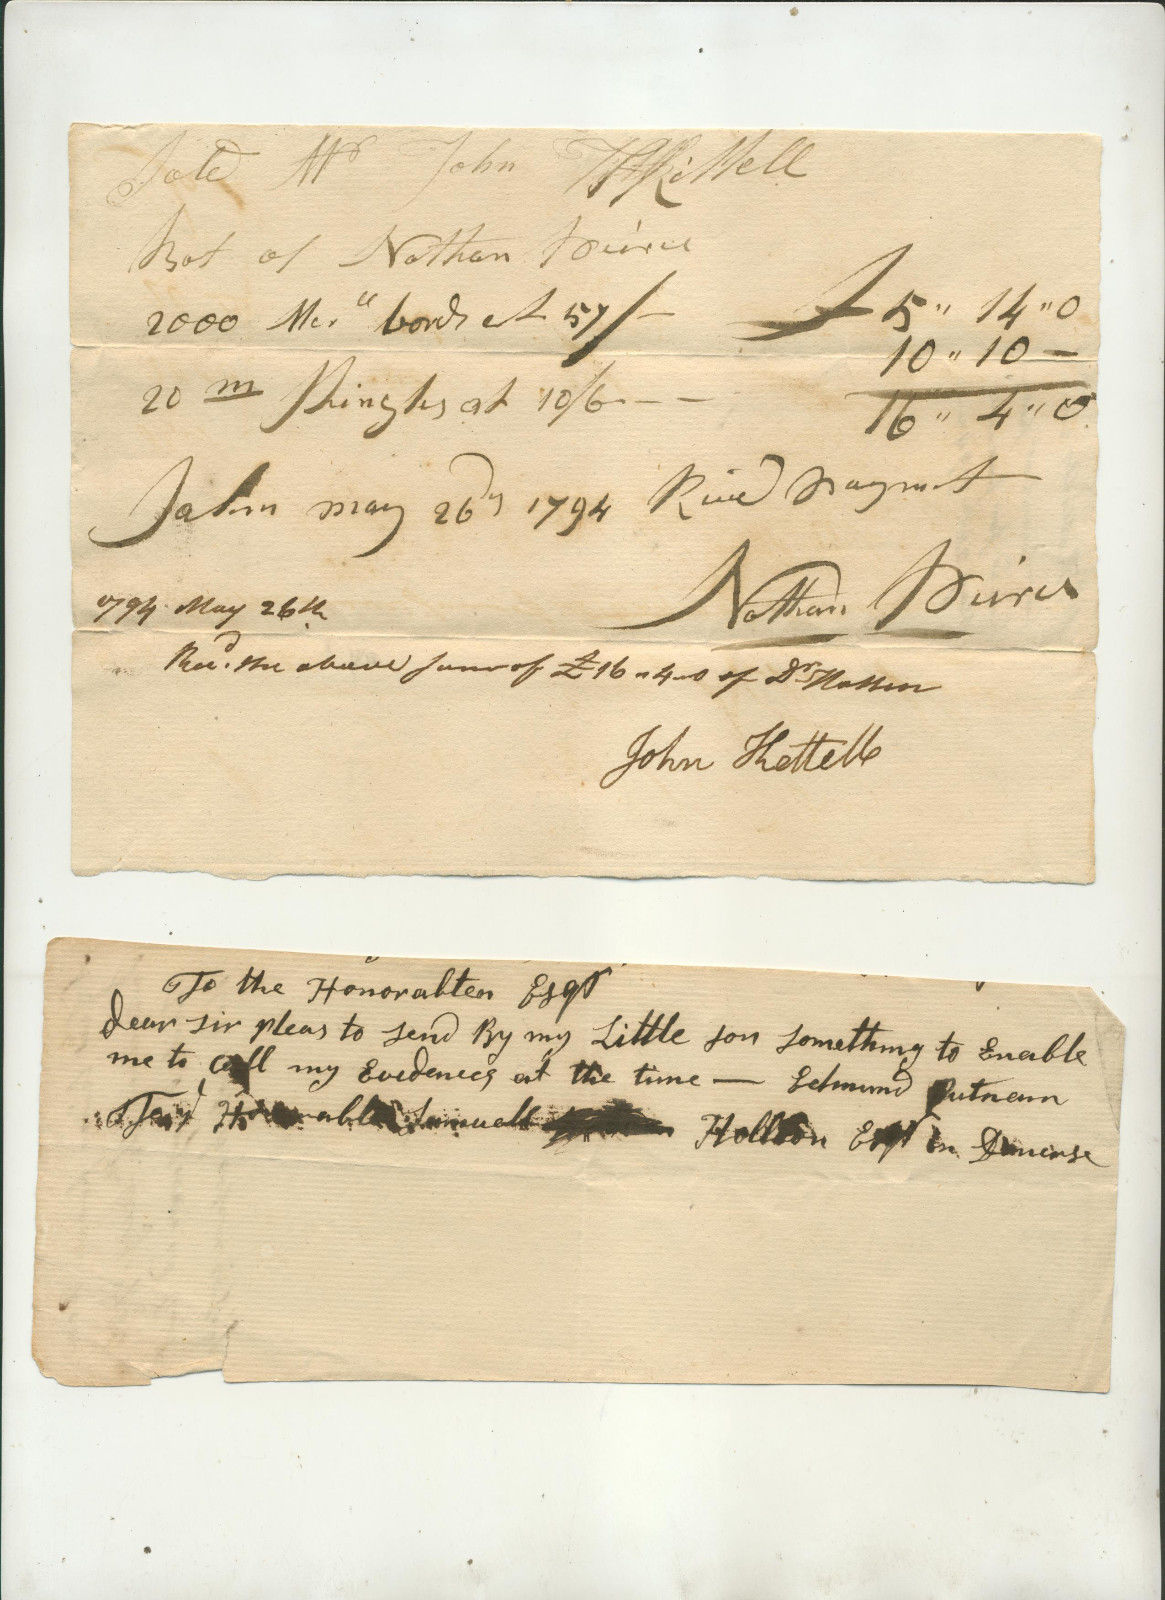 Mr John Kittell
Bot of Nathan Peirce
2000 Mer.ll bords at 57/– £ 5 " 14 " 0
10 " 10 –
20 m Shingles at 10/6 – – 16 " 4 " 0
Salem may 26 1794 Reied Payment
Nathan Peirce
1794 May 26th
Recd. the above sum of £16 " 4 " 0 of Dr Holten
John Kettell
To the Honorabten Esqr
dear sir pleas to send By my Little son something to Enable
me to call my Evedences at the time — Edmund Putnam
To Honorable Samuell Holton Esqr in Danverse